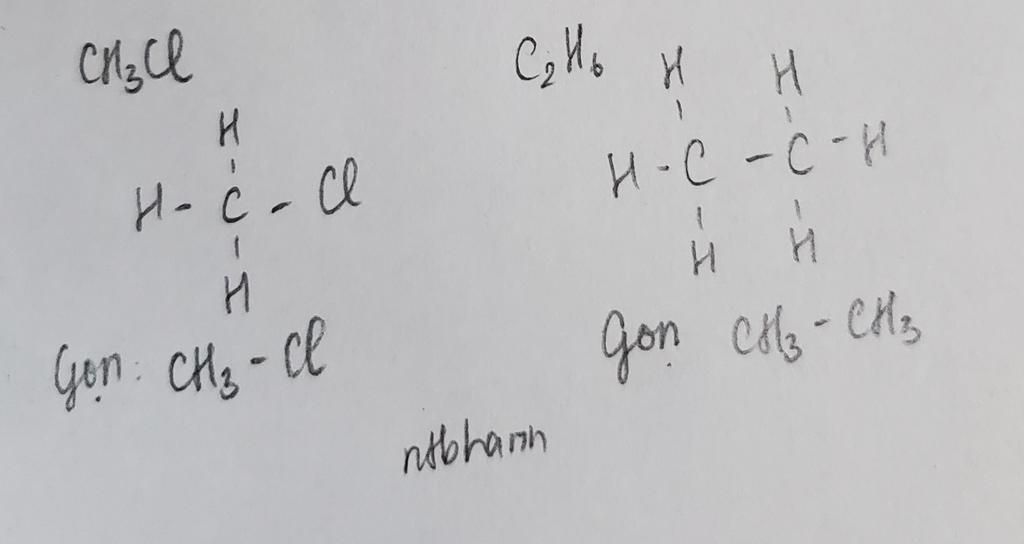 CH₃Cl
H
H - C - Cl
H
Gọn: CH₃ - Cl
C₂H₆
H H
H - C - C - H
H H
Gọn CH₃ - CH₃